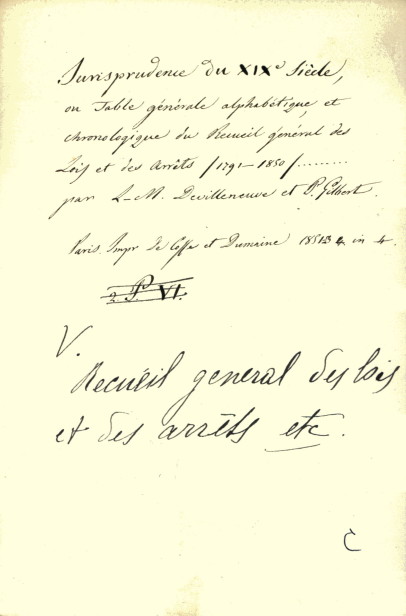 Jurisprudence du XIXe Siècle,
ou Table générale alphabétique et
chronologique du Recueil général des
Lois et des Arrêts /1791-1850/.........
par L-M. Devilleneuve et P. Gilbert.
Paris. Impr de Cosse et Dumaine 1851 in 4.
2 P. VI.
V.
Recueil general des lois
et des arrêts etc.
C